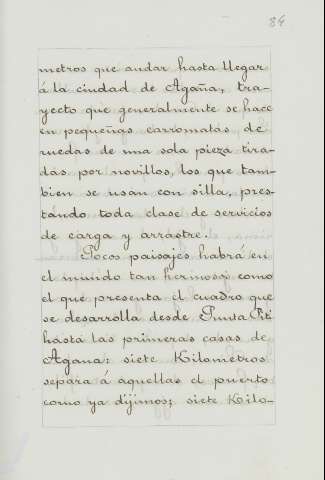 84
metros que andar hasta llegar
á la ciudad de Agaña, tra-
yecto que generalmente se hace
en pequeñas carromatas de
ruedas de una sola pieza tira-
das por novillos, los que tam-
bien se usan con silla, pres-
tando toda clase de servicios
de carga y arrastre.
Pocos paisajes habrá en
el mundo tan hermosos como
el que presenta el cuadro que
se desarrolla desde Punta Piti
hasta las primeras casas de
Agana: siete Kilometros
separa á aquellas el puerto
como ya dijimos; siete Kilo-